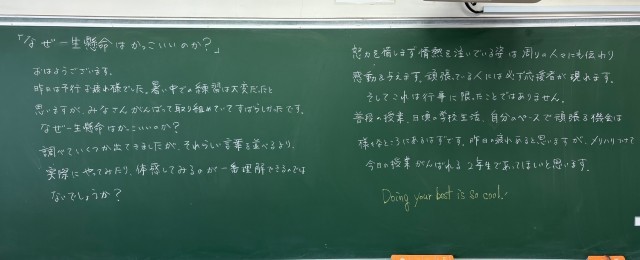 「なぜ一生懸命はかっこいいのか？」
おはようございます。
昨日は予行お疲れ様でした。暑い中での練習は大変だったと
思いますが、みなさんがんばって取り組めていてすばらしかったです。
なぜ一生懸命はかっこいいのか？
調べていくつか出てきましたが、それらしい言葉を並べるより、
実際にやってみたり、体感してみるのが一番理解できるのでは
ないでしょうか？
努力を惜します情熱を注いでいる姿は周りの人々にも伝わり
感動を与えます。頑張っている人には必ず応援者が現れます。
そしてこれは行事に限ったことではありません。
普段の授業、日頃の学校生活、自分のペースで頑張る機会は
様々なところにあるはずです。昨日の疲れあると思いますが、メリハリつけて
今日の授業がんばれる2年生であってほしいと思います。
Doing your best is so cool.